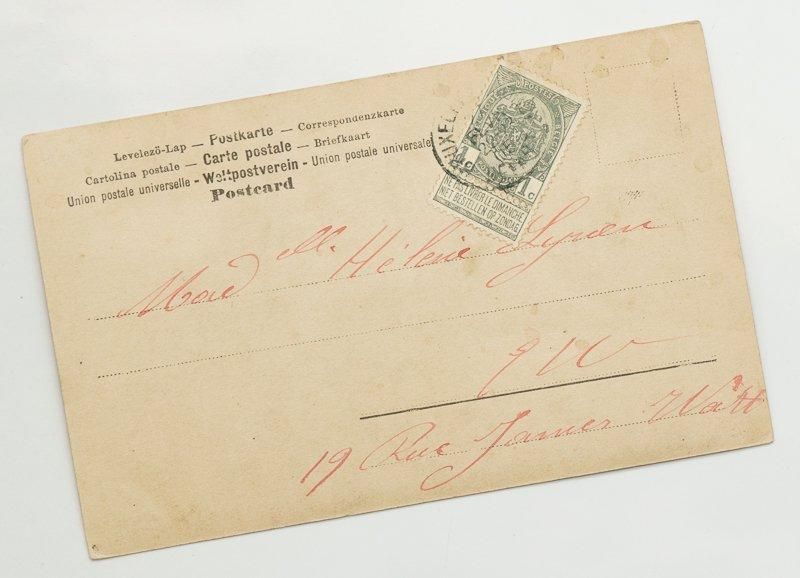 Levelező-Lap — Postkarte — Correspondenzkarte
Cartolina postale — Carte postale — Briefkaart
Union postale universelle - Weltpostverein - Union postale universale
Postcard
1c 1c
NE PAS LIVRER LE DIMANCHE
NIET BESTELLEN OP ZONDAG
Mad elle. Hélène
E/W
19 Rue James Watt